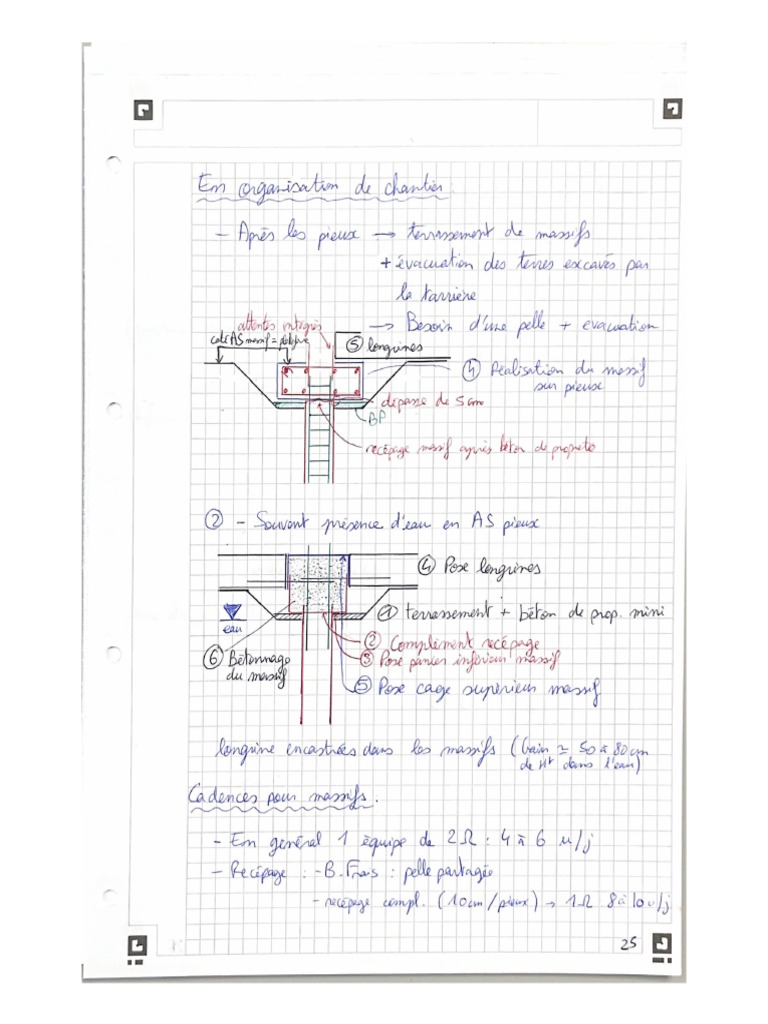 En organisation de chantier.
- Après les pieux → terrassement de massifs
+ évacuation des terres excavés par
la tarrière
→ Besoin d'une pelle + evacuation
attentes intégrés
cale AS massif = plateforme
⑤ longrines
④ Réalisation du massif
sur pieux
dépasse de 5 cm
BP
recépage massif après béton de propreté
② - Souvent présence d'eau en AS pieux
④ Pose longrines
eau
① terrassement + béton de prop. mini
② Complément recépage
③ Pose panier inférieur massif
⑥ Bétonnage
du massif
⑤ Pose cage supérieur massif
longrine encastrées dans les massifs (Gain ≃ 50 à 80 cm
de Ht dans l'eau)
Cadences pour massifs.
- En général 1 équipe de 2 Ω : 4 à 6 u/j
- Recépage : - B. Frais : pelle partagée
- recépage compl. (10cm/pieux) → 1Ω 8 à 10 u/j
25